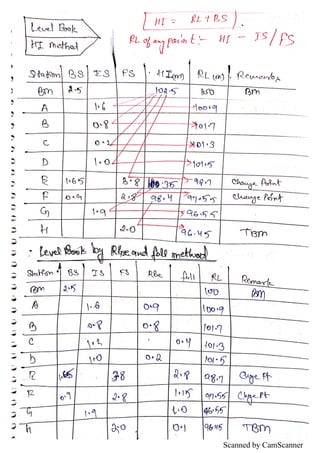 Level Book
HI method
HI = RL + BS.
RL of any point :- HI - IS/FS
Station BS IS FS HI(m) RL(m) Remark
BM 2.5 102.5 100 BM
A 1.6 100.9
B 0.8 101.7
C 1.2 101.3
D 1.0 101.5
E 1.65 3.8 100.35 98.7 Change Point
F 0.9 2.8 98.4 97.55 Change Point
G 1.9 96.55
H 2.0 96.45 TBM
Level Book by Rise and fall method
Station BS IS FS Rise fall RL Remark
BM 2.5 100 BM
A 1.6 0.9 100.9
B 0.8 0.8 101.7
C 1.2 0.4 101.3
D 1.0 0.2 101.5
E 1.65 3.8 2.8 98.7 Chge Pt
F 0.9 2.8 1.15 97.55 Chge Pt
G 1.9 1.0 96.55
H 2.0 0.1 96.45 TBM
Scanned by CamScanner